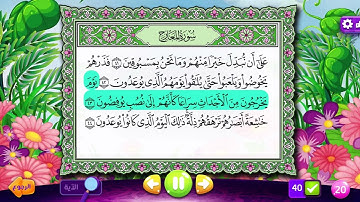 سُورَةُ المَعَارِجِ
عَلَىٰٓ أَن نُّبَدِّلَ خَيْرًا مِّنْهُمْ وَمَا نَحْنُ بِمَسْبُوقِينَ ٤١ فَذَرْهُمْ
يَخُوضُوا۟ وَيَلْعَبُوا۟ حَتَّىٰ يُلَٰقُوا۟ يَوْمَهُمُ ٱلَّذِى يُوعَدُونَ ٤٢ يَوْمَ
يَخْرُجُونَ مِنَ ٱلْأَجْدَاثِ سِرَاعًا كَأَنَّهُمْ إِلَىٰ نُصُبٍ يُوفِضُونَ ٤٣
خَٰشِعَةً أَبْصَٰرُهُمْ تَرْهَقُهُمْ ذِلَّةٌ ذَٰلِكَ ٱلْيَوْمُ ٱلَّذِى كَانُوا۟ يُوعَدُونَ ٤٤
الرجوع الآية 40 20